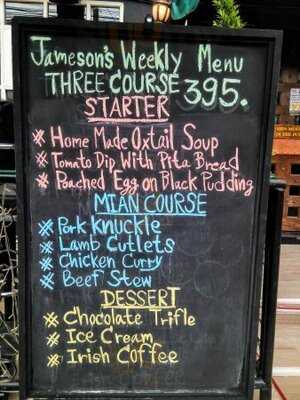 Jameson's Weekly Menu
THREE COURSE 395.
STARTER
* Home Made Oxtail Soup
* Tomato Dip With Pita Bread
* Poached Egg on Black Pudding
MIAN COURSE
* Pork Knuckle
* Lamb Cutlets
* Chicken Curry
* Beef Stew
DESSERT
* Chocolate Trifle
* Ice Cream
* Irish Coffee